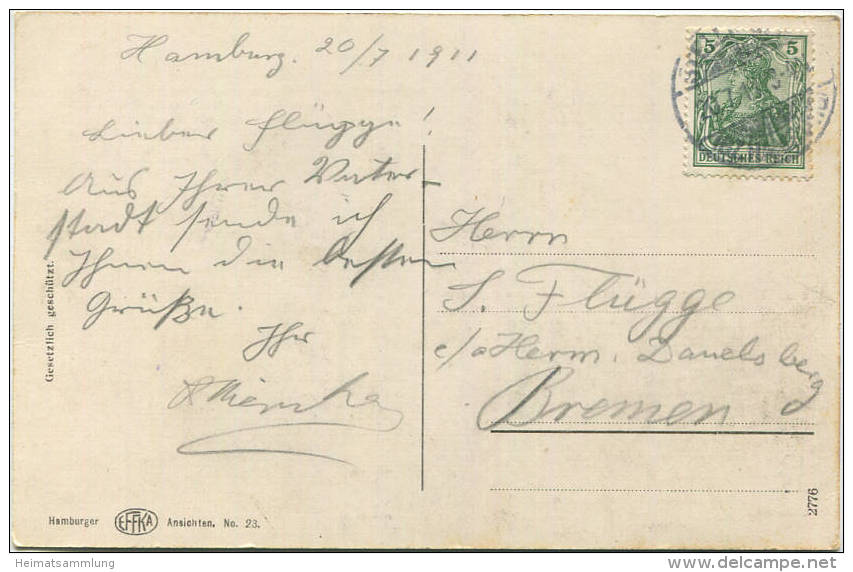 Hamburg. 20/7 1911
Lieber Flügge!
Aus Ihrer Vater-
stadt sende ich
Ihnen die besten
Grüße.
Ihr
5 5
DEUTSCHES REICH
Herrn
S. Flügge
c/o Herm. Danelsberg
Bremen
Gesetzlich geschützt.
Hamburger EFFKA Ansichten. No. 23.
2776
Heimatsammlung
www.delcampe.net